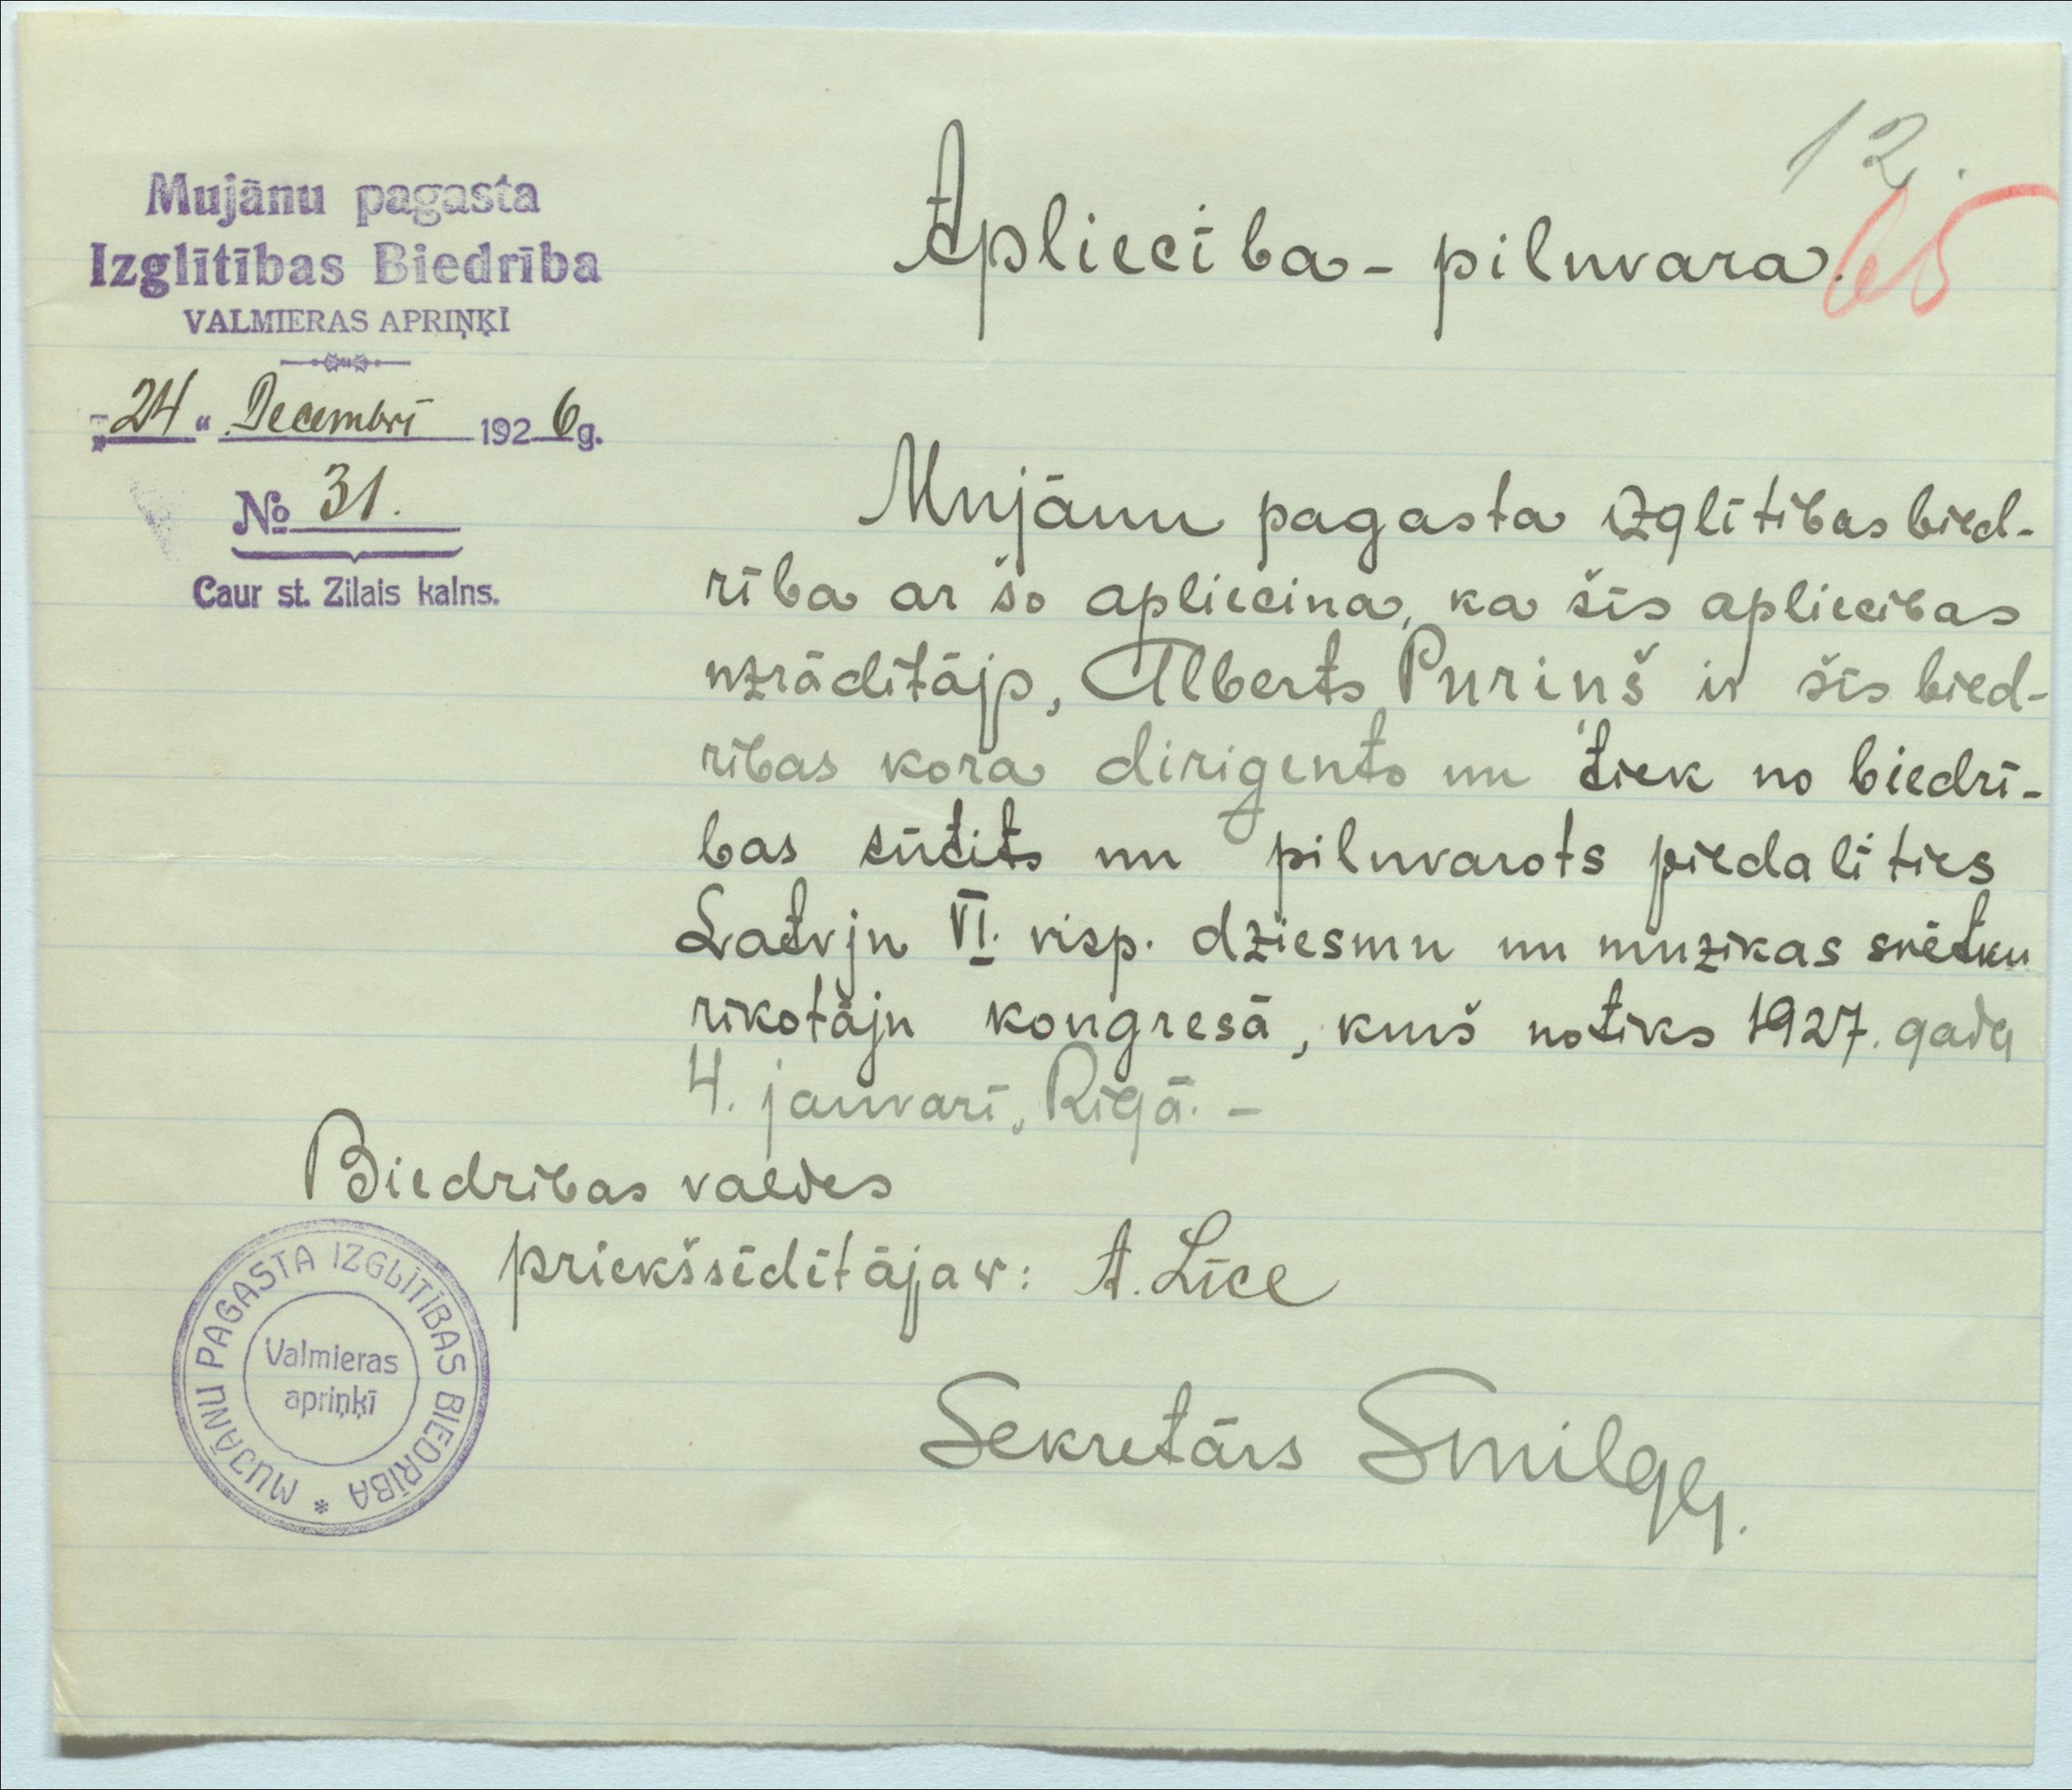 12.
65
Mujānu pagasta
Izglītības Biedrība
VALMIERAS APRIŅĶĪ
„24“ Decembrī 1926g.
№ 31.
Caur st. Zilais kalns.
Apliecība - pilnvara.
Mujānu pagasta izglītības bied-
rība ar šo apliecina, ka šīs apliecības
uzrādītājs, Alberts Puriņš ir šīs bied-
rības kora dirigents un tiek no biedrī-
bas sūtīts un pilnvarots piedalīties
Latvju VI. visp. dziesmu un muzikas svētku
rīkotāju kongresā, kurš notiks 1927. gada
4. janvarī, Rīgā. -
Biedrības valdes
priekšsēdētāja v: A. Līce
Sekretārs Smilga.
MUJĀNU PAGASTA IZGLĪTĪBAS BIEDRĪBA *
Valmieras
apriņķī